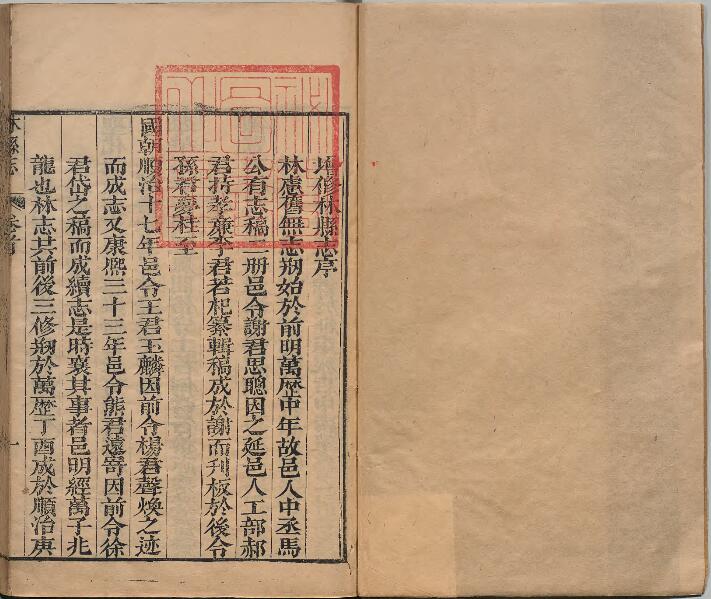 增修林縣志序
林慮舊無志刱始於前明萬歷中年故邑人中丞馬
公有志稿二册邑令謝君思聰因之延邑人工部郝
君持孝亷李君若杞纂輯稿成於謝而刋板於後令
孫君夢桂至
國朝順治十七年邑令王君玉麟因前令楊君聲煥之迹
而成志又康熙三十三年邑令熊君遠寄因前令徐
君岱之稿而成續志是時襄其事者邑明經萬子兆
龍也林志其前後三修刱於萬歷丁酉成於順治庚
林縣志
卷首
一